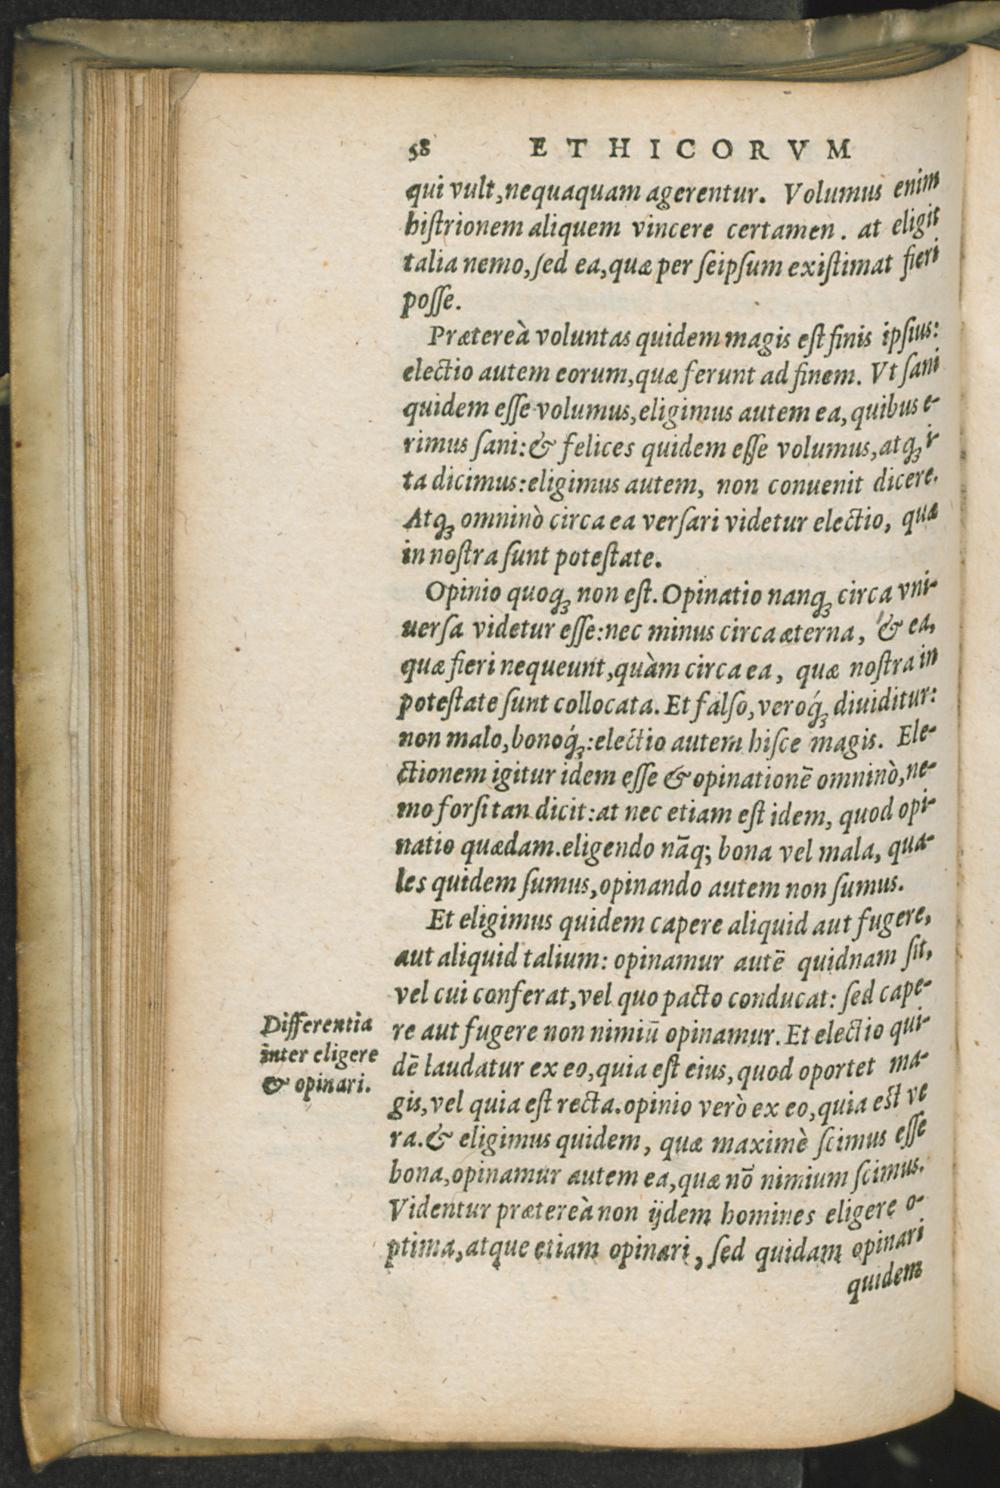 58 ETHICORVM
qui vult, nequaquam agerentur. Volumus enim
histrionem aliquem vincere certamen. at eligit
talia nemo, sed ea, quæ per seipsum existimat fieri
posse.
Prætereà voluntas quidem magis est finis ipsius:
electio autem eorum, quæ ferunt ad finem. Vt sani
quidem esse volumus, eligimus autem ea, quibus e-
rimus sani: & felices quidem esse volumus, atq; i-
ta dicimus: eligimus autem, non conuenit dicere.
Atq; omninò circa ea versari videtur electio, quæ
in nostra sunt potestate.
Opinio quoq; non est. Opinatio nanq; circa vni-
uersa videtur esse: nec minus circa æterna, & ea,
quæ fieri nequeunt, quàm circa ea, quæ nostra in
potestate sunt collocata. Et falso, veroq́; diuiditur:
non malo, bonoq́;: electio autem hisce magis. Ele-
ctionem igitur idem esse & opinationē omninò, ne-
mo forsitan dicit: at nec etiam est idem, quod opi-
natio quædam. eligendo nāq; bona vel mala, qua-
les quidem sumus, opinando autem non sumus.
Et eligimus quidem capere aliquid aut fugere,
aut aliquid talium: opinamur autē quidnam sit,
vel cui conferat, vel quo pacto conducat: sed cape-
re aut fugere non nimiū opinamur. Et electio qui-
dē laudatur ex eo, quia est eius, quod oportet ma-
gis, vel quia est recta. opinio verò ex eo, quia est ve
ra. & eligimus quidem, quæ maximè scimus esse
bona, opinamur autem ea, quæ nō nimium scimus.
Videntur prætereà non ijdem homines eligere o-
ptima, atque etiam opinari, sed quidam opinari
quidem
Differentia
inter eligere
& opinari.